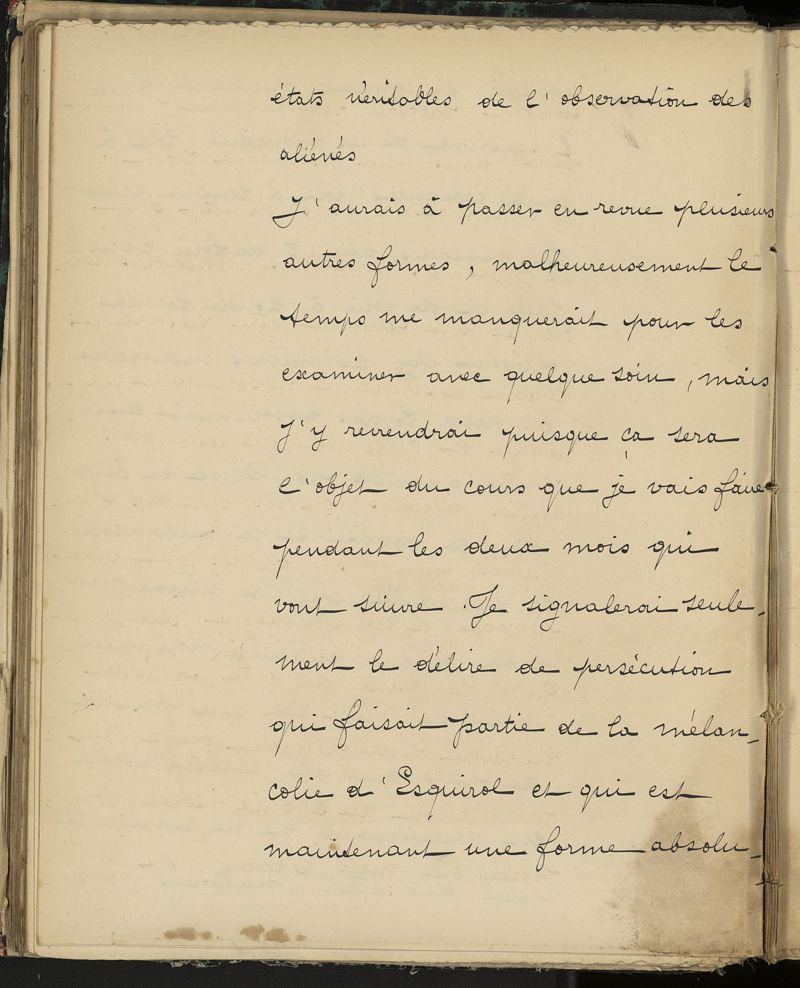 états véritables de l'observation des
aliénés
J'aurais à passer en revue plusieurs
autres formes, malheureusement le
temps me manquerait pour les
examiner avec quelque soin, mais
j'y reviendrai puisque ça sera
l'objet du cours que je vais faire
pendant les deux mois qui
vont suivre. Je signalerai seule-
ment le délire de persécution
qui faisait partie de la mélan-
colie d'Esquirol et qui est
maintenant une forme absolu-